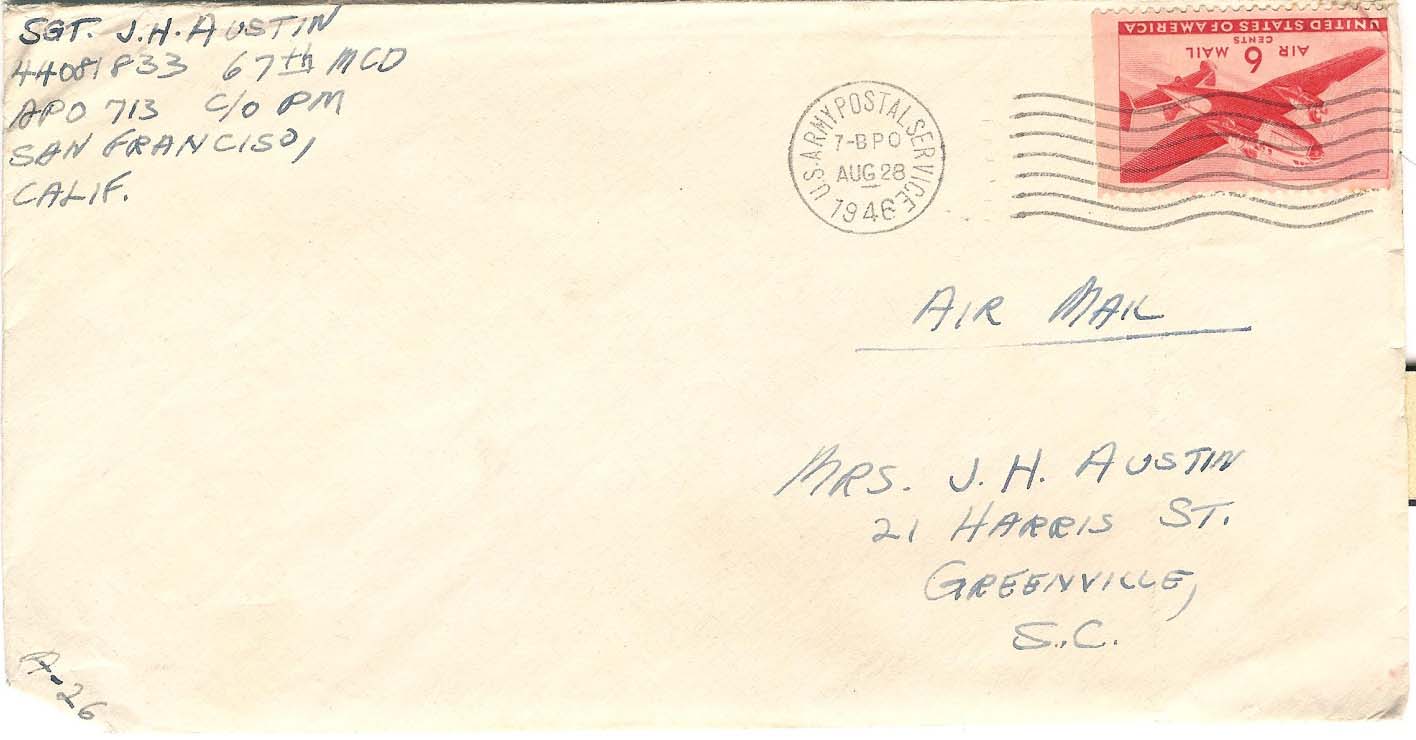 SGT. J.H. AUSTIN
44081833 67th MCD
APO 713 C/O PM
SAN FRANCISO,
CALIF.
U.S. ARMY. POSTAL SERVICE
7-BPO
AUG 28
1946
UNITED STATES OF AMERICA
AIR 6 MAIL
CENTS
AIR MAIL
MRS. J. H. AUSTIN
21 HARRIS ST.
GREENVILLE,
S.C.
A-26